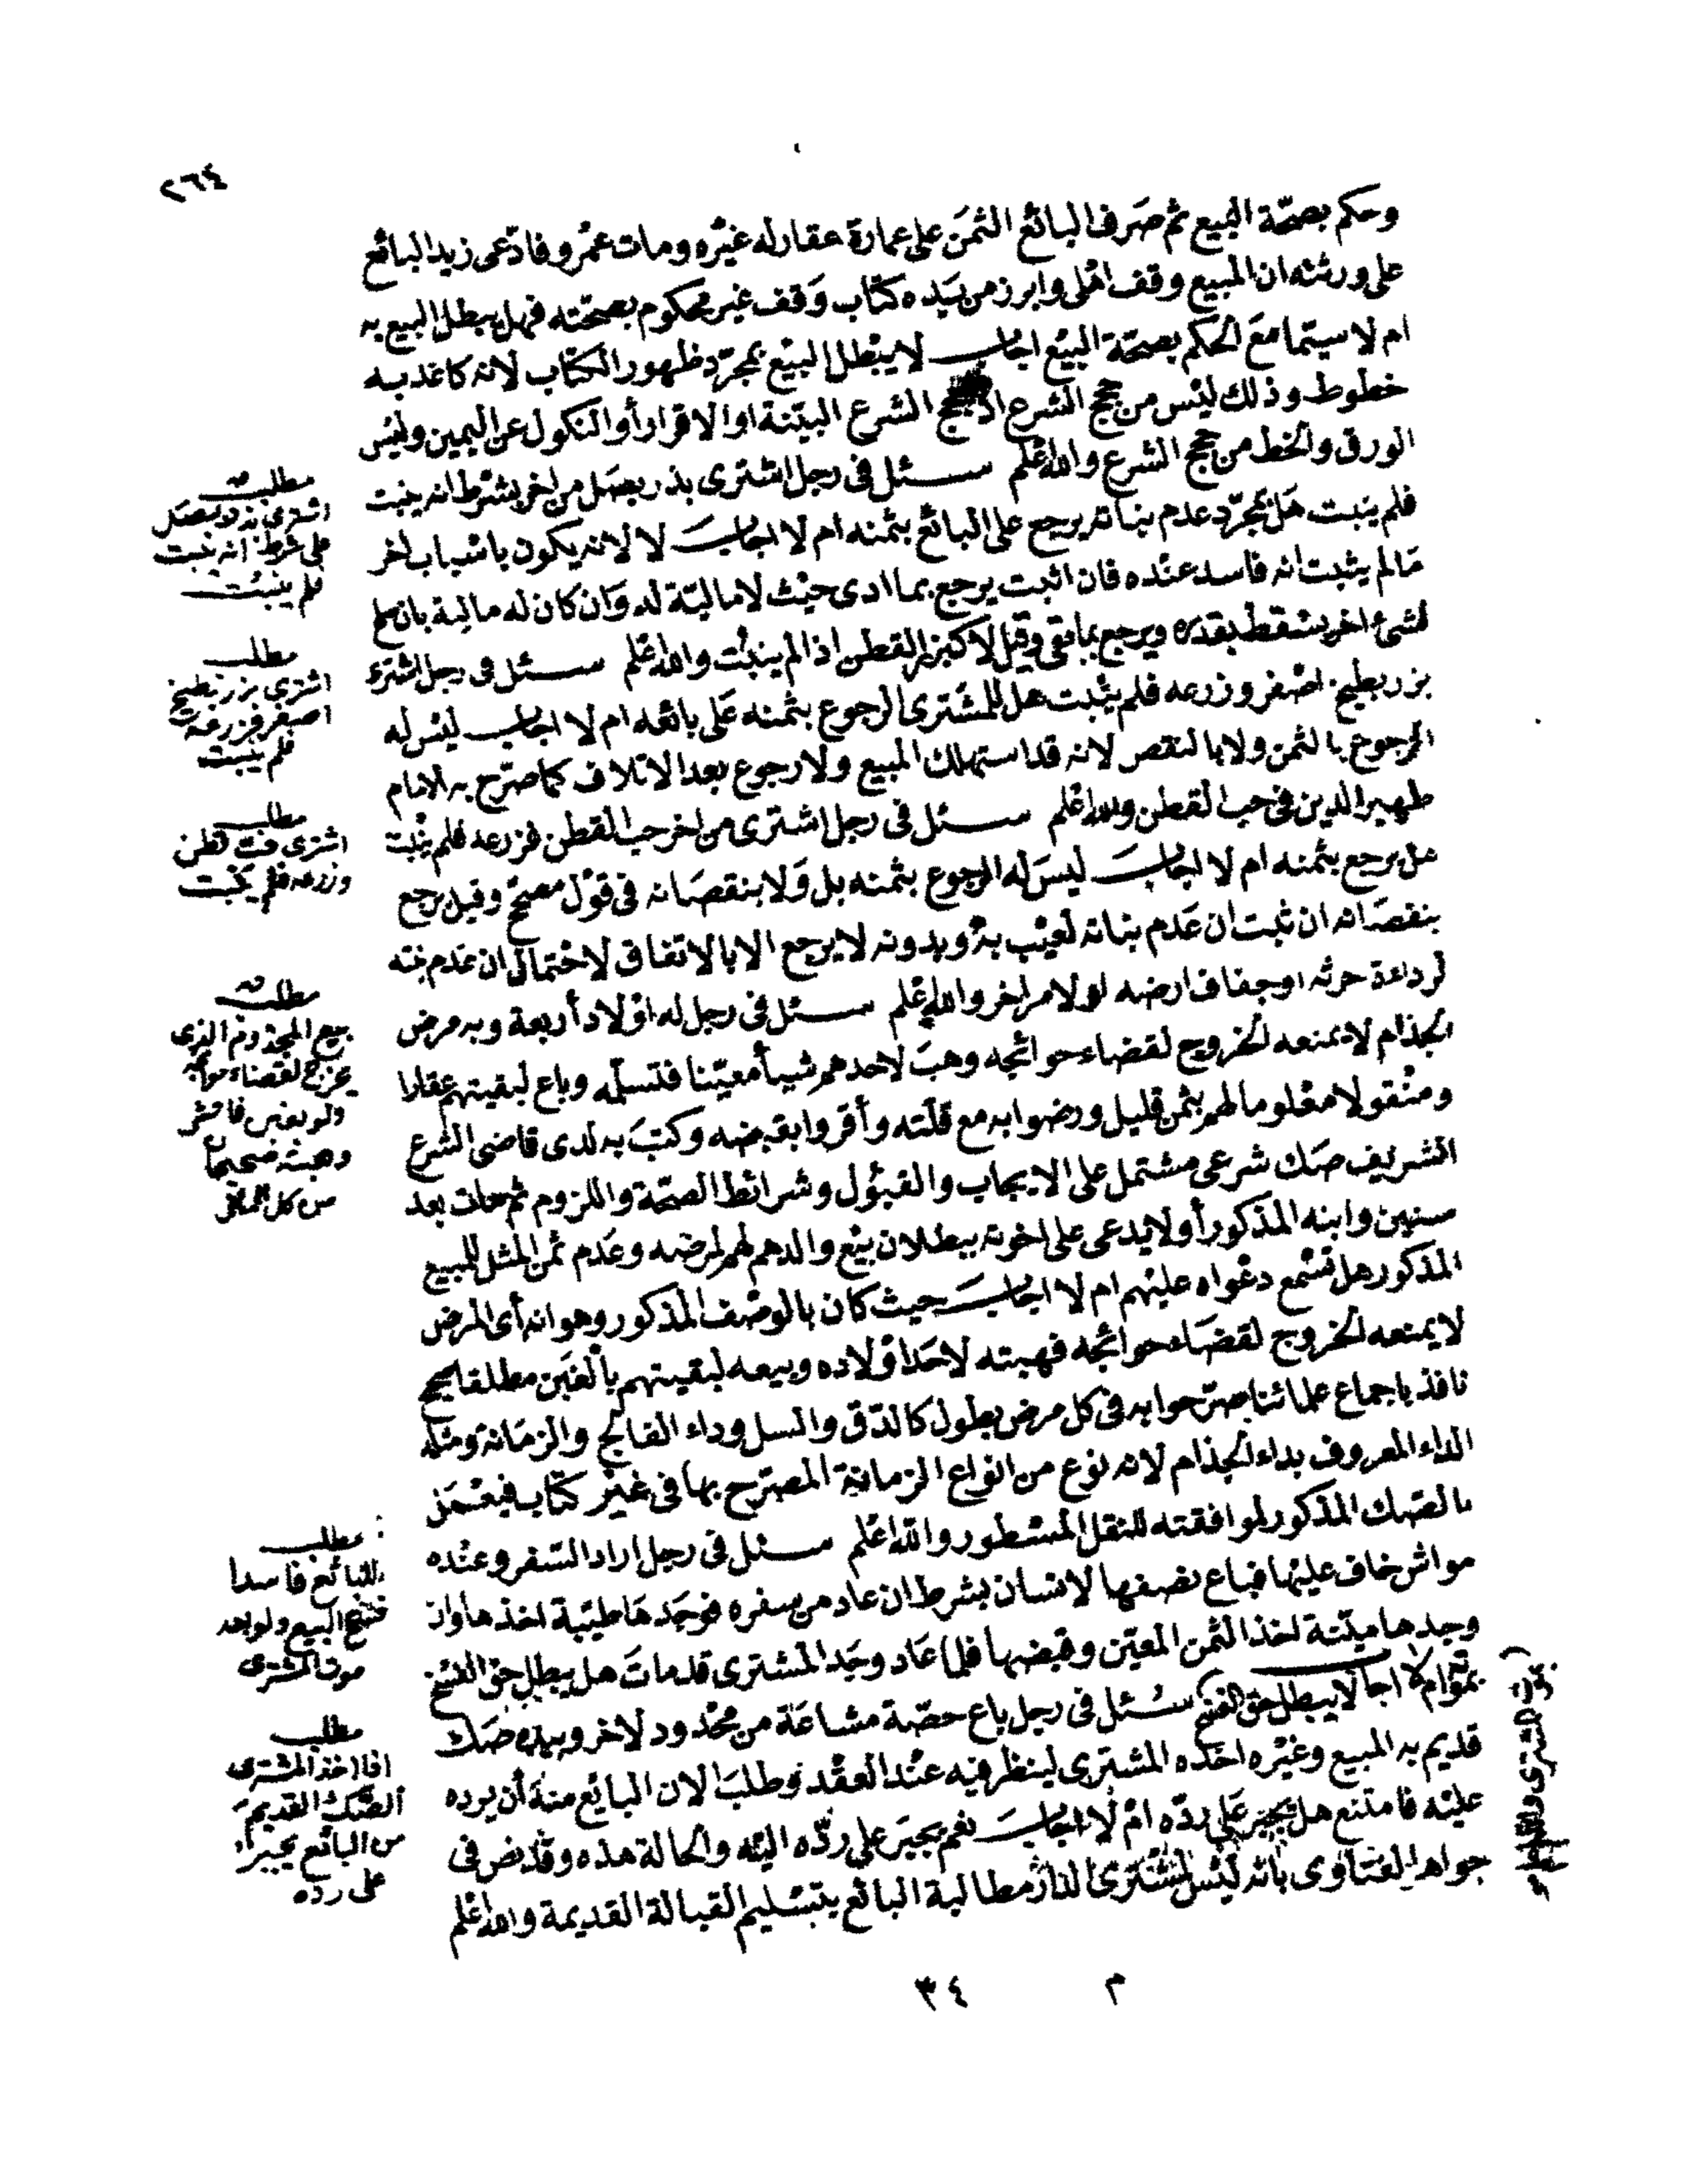 ٢٦٤
وحكم بصحّة البيع ثم صرف البائع الثمن على عمارة عقار له غيره ومات عمرو فادّعى زيد البائع
على ورثته ان المبيع وقف اهلى وابرز من يده كتاب وقف غير محكوم بصحته فهل يبطل البيع به
ام لا سيّما مع الحكم بصحّة البيع اجاب لا يبطل البيع بمجرّد ظهور الكتاب لانه كاغد به
خطوط وذلك ليس من حجج الشرع اذ حجج الشرع البيّنة او الاقرار أو النكول عن اليمين وليس
الورق والخط من حجج الشرع والله اعلم سئل فى رجل اشترى بذر بصل من اخر بشرط انه ينبت
فلم ينبت هل بمجرّد عدم نباته يرجع على البائع بثمنه ام لا اجاب لا لانه يكون باسباب اخر
مالم يثبت انه فاسد عنده فان اثبت يرجع بما ادى حيث لا ماليّة له وان كان له مالية بان صلح
لشئ اخر يسقط بقدره ويرجع بما بقى وقيل لا كبزر القطن اذا لم ينبت والله اعلم سئل فى رجل اشترى
بزر بطيخ اصفر وزرعه فلم ينبت هل للمشترى الرجوع بثمنه على بائعه ام لا اجاب ليس له
الرجوع بالثمن ولا بالنقص لانه قد استهلك المبيع ولا رجوع بعد الاتلاف كما صرّح به الامام
ظهير الدين فى حب القطن والله اعلم سئل فى رجل اشترى من اخر حب القطن فزرعه فلم ينبت
هل يرجع بثمنه ام لا اجاب ليس له الرجوع بثمنه بل ولا بنقصانه فى قول مصحّح وقيل يرجع
بنقصانه ان ثبت ان عدم نباته لعيب به وبدونه لا يرجع الا بالاتفاق لاحتمال ان عدم نبته
لرداءة حرثه او جفاف ارضه او لامر اخر والله اعلم سئل فى رجل له اولاد أربعة وبه مرض
الجذام لا يمنعه الخروج لقضاء حوائجه وهب لاحدهم شيأ معيّنا فتسلّمه وباع لبقيتهم عقارا
ومنقولا معلوما لهم بثمن قليل ورضوا به مع قلّته وأقروا بقبضه وكتب به لدى قاضى الشرع
الشريف صك شرعى مشتمل على الايجاب والقبول وشرائط الصحّة واللزوم ثم مات بعد
سنين وابنه المذكور أولا يدعى على اخوته ببطلان بيع والدهم لهم لمرضه وعدم ثمن المثل للمبيع
المذكور هل تسمع دعواه عليهم ام لا اجاب حيث كان بالوصف المذكور وهو انه أى المرض
لا يمنعه الخروج لقضاء حوائجه فهبته لاحد اولاده وبيعه لبقيتهم بالغبن مطلقا صحيح
نافذ باجماع علمائنا صرّحوا به فى كل مرض يطول كالدّق والسل وداء الفالج والزمانة ومثله
الداء المعروف بداء الجذام لانه نوع من انواع الزمانة المصرّح بها فى غير كتاب فيعمل
بالصك المذكور لموافقته للنقل المسطور والله اعلم سئل فى رجل اراد السفر وعنده
مواش خاف عليها فباع نصفها لانسان بشرط ان عاد من سفره فوجدها طيّبة اخذها وان
وجدها ميتنة اخذ الثمن المعيّن وقبضها فلما عاد وجد المشترى قد مات هل يبطل حق الفسخ
بموته ام لا اجاب لا يبطل حق الفسخ سئل فى رجل باع حصّة مشاعة من محدود لاخر وبيده صك
قديم به المبيع وغيره اخذه المشترى لينظر فيه عند العقد وطلب الان البايع منه أن يرده
عليه فامتنع هل يجبر على ردّه ام لا اجاب نعم يجبر على ردّه اليه والحالة هذه وقد نص فى
جواهر الفتاوى بانه ليس لمشترى الدار مطالبة البائع بتسليم القبالة القديمة والله اعلم
مطلب
اشترى بذر بصل
على شرط انه ينبت
فلم ينبت
مطلب
اشترى بزر بطيخ
اصفر فزرعه
فلم ينبت
مطلب
اشترى حب قطن
وزرعه فلم ينبت
مطلب
بيع المجذوم الذى
يخرج لقضاء حوائجه
ولو بغبن فاحش
وهبته صحيحان
من كل المال
مطلب
للبائع فاسدا
فسخ البيع ولو بعد
موت المشترى
مطلب
اذا اخذ المشترى
الصك القديم
من البائع يجبر
على رده
م ٣٤